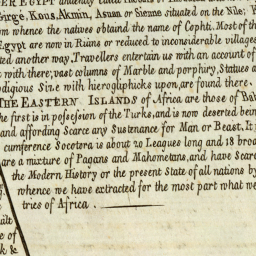 ER EGYPT
Girge, Kous, Akmin, Asuan or Sienne situated on the Nile;
om whence the natives obtaind the name of Cophti. Most of the
Egypt are now in Ruins or reduced to inconsiderable villages
ted another way, Travellers entertain us with an account of
s with there; vast columns of Marble and porphiry, Statues a
odigious Size with hierogluphicks upon, are found there.
THE EASTERN ISLANDS of Africa are those of Bab
he first is in possession of the Turks, and is now deserted bein
and affording Scarce any Sustenance for Man or Beast. It
cumference Socotora is about 20 Leagues long and 18 broa
are a mixture of Pagans and Mahometans, and have Scarc
the Modern History or the present State of all nations by
whence we have extracted for the most part what we
tries of Africa.
alt
e of
k &